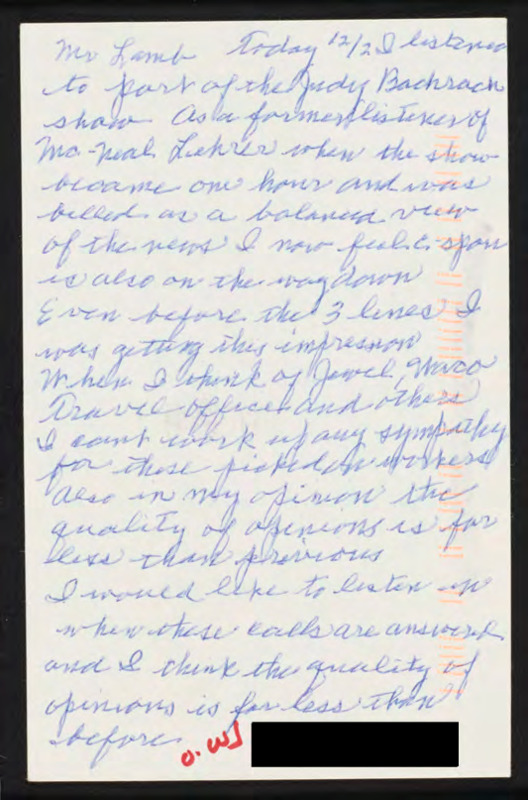 Mr Lamb Today 12/2 I listened
to part of the Judy Bachrach
show. As a former listener of
Mc-Neal Lehrer when the show
became one hour and was
billed as a balanced view
of the news I now feel C span
is also on the way down
Even before the 3 lines I
was getting this impression
When I think of Jewel,
Travel office and others
I cant work up any sympathy
for these picked on workers
Also in my opinion the
quality of opinions is far
less than previous
I would like to listen in
when these calls are answered
and I think the quality of
opinions is far less than
before.
O.W.